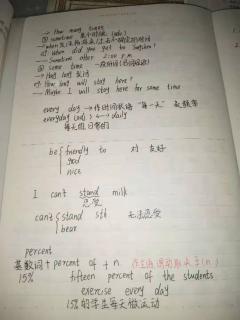 → How many times
② sometime 某个时候 (adv)
→ when
eg When did you get to
— Sometime after 2:00 p.m.
③ some time 一段时间
→ How long
eg How long will stay here?
— Maybe I will stay here for some time
every day → 作时间状语 "每一天"
everyday (adj) ↔ daily
每天的 日常的
be { friendly to 对 友好
good
nice
I can't stand milk
忍受
can't { stand sth 无法忍受
bear
percent
基数词 + percent of + n. 作主语 (n)
15% fifteen percent of the students
exercise every day
15%的学生每天做运动